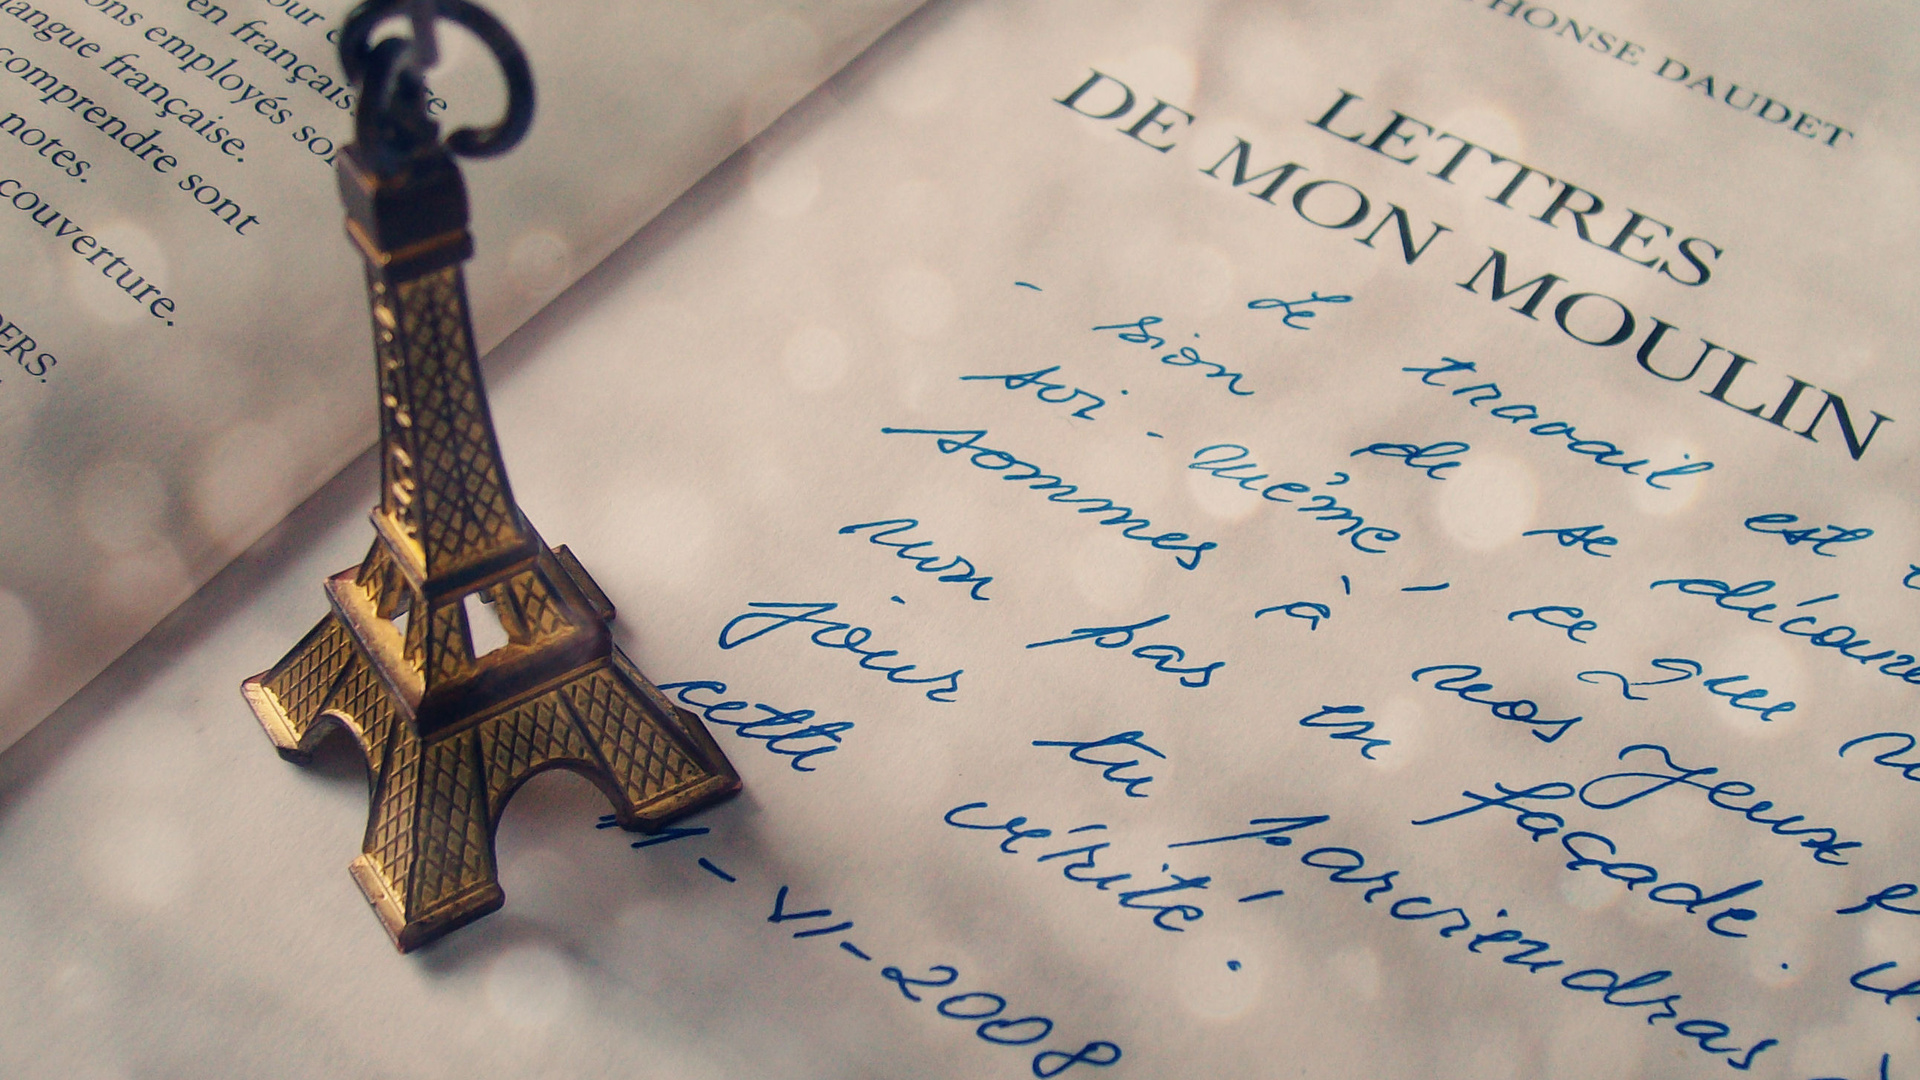 our
en français
ons employés so
langue française.
comprendre sont
notes.
couverture.
DERS.
PHONSE DAUDET
LETTRES
DE MON MOULIN
Le travail est
- sion de se découvr
soi-même, ce que
sommes à nos yeux
non pas en façade.
jour tu parviendras
cette vérité.
VI-2008